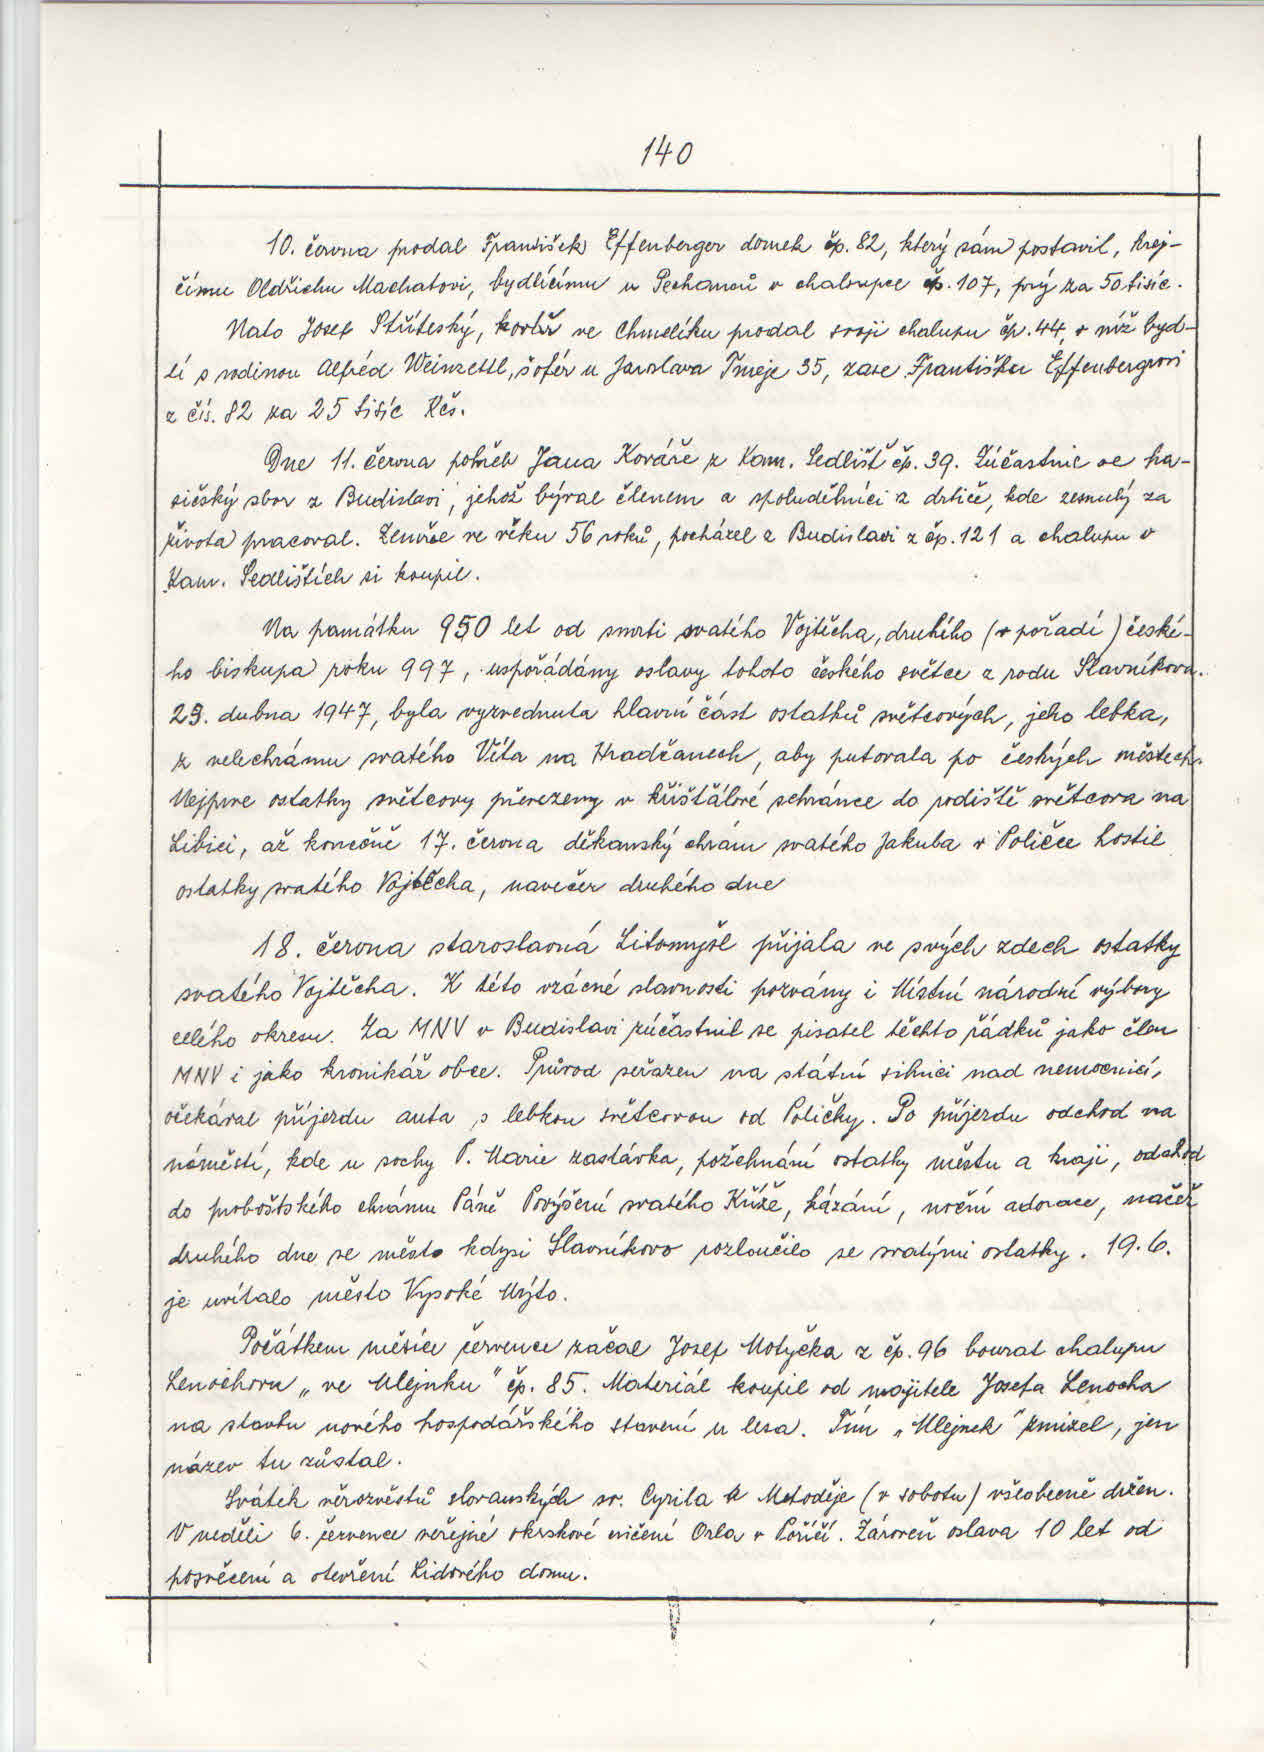 140
10. června prodal František Effenberger domek čp. 82, který sám postavil, krej-
čímu Oldřichu Machatovi, bydlícímu u Pechanců v chaloupce čp. 107, prý za 50 tisíc.
Nato Josef Stříteský, kovář ve Chmelíku prodal svoji chalupu čp. 44, v níž byd-
lí s rodinou Alfréd Weinzettl, šofér u Jaroslava Tmeje 35, zase Františku Effenbergrovi
z čís. 82 za 25 tisíc Kčs.
Dne 11. června pohřeb Jana Kováře z Kam. Sedlišť čp. 39. Zúčastnil se ha-
sičský sbor z Budislavi, jehož býval členem a spoludělníci z drtiče, kde zesnulý za
života pracoval. Zemřel ve věku 56 roků, pocházel z Budislavi z čp. 121 a chalupu v
Kam. Sedlištích si koupil.
Na památku 950 let od smrti svatého Vojtěcha, druhého (v pořadí) české-
ho biskupa roku 997, uspořádány oslavy tohoto českého světce z rodu Slavníkova.
23. dubna 1947, byla vyzvednuta hlavní část ostatků světcových, jeho lebka,
z velechrámu svatého Víta na Hradčanech, aby putovala po českých městech.
Nejprve ostatky světcovy převezeny v křišťálové schránce do rodiště světcova na
Libici, až konečně 17. června děkanský chrám svatého Jakuba v Poličce hostil
ostatky svatého Vojtěcha, navečer druhého dne
18. června staroslavná Litomyšl přijala ve svých zdech ostatky
svatého Vojtěcha. K této vzácné slavnosti pozvány i Místní národní výbory
celého okresu. Za MNV v Budislavi zúčastnil se pisatel těchto řádků jako člen
MNV i jako kronikář obce. Průvod seřazen na státní silnici nad nemocnicí,
očekával příjezdu auta s lebkou světcovou od Poličky. Po příjezdu odchod na
náměstí, kde u sochy P. Marie zastávka, požehnání ostatky městu a kraji, odchod
do proboštského chrámu Páně Povýšení svatého Kříže, kázání, noční adorace, načež
druhého dne se město kdysi Slavníkovo rozloučilo se svatými ostatky. 19. 6.
je uvítalo město Vysoké Mýto.
Počátkem měsíce července začal Josef Motyčka z čp. 96 bourat chalupu
Lenochovu „ve Mlejnku" čp. 85. Materiál koupil od majitele Josefa Lenocha
na stavbu nového hospodářského stavení u lesa. Tím „Mlejnek" zmizel, jen
název tu zůstal.
Svátek věrozvěstů slovanských sv. Cyrila a Metoděje (v sobotu) všeobecně držen.
V neděli 6. července veřejné okrskové cvičení Orla v Poříčí. Zároveň oslava 10 let od
posvěcení a otevření Lidového domu.